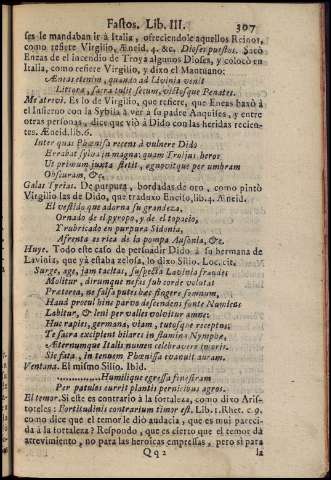 Fastos. Lib. III. 307
ses le mandaban ir à Italia, ofreciendole aquellos Reinos,
como refiere Virgilio, Æneid. 4. &c. Dioses puestos. Sacò
Eneas de el incendio de Troya algunos Dioses, y colocò en
Italia, como refiere Virgilio, y dixo el Mantuano:
Æneas etenim, quando ad Lavinia venit
Littora, sacra tulit secum, victosque Penates.
Me atrevi. Es lo de Virgilio, que refiere, que Eneas baxò à
el Infierno con la Sybila à ver à su padre Anquises, y entre
otras personas, dice que viò à Dido con las heridas recien-
tes. Æneid. lib. 6.
Inter quas Phœnissa recens à vulnere Dido
Errabat sylva in magna: quam Troius heros
Ut primùm juxta stetit, agnovitque per umbram
Obscuram, &c.
Galas Tyrias. De purpura, bordadas de oro, como pintò
Virgilio las de Dido, que traduxo Enciso, lib. 4. Æneid.
El vestido que adorna su grandeza,
Ornado de el pyropo, y de el topacio,
Y rabricado en purpura Sidonia,
Afrenta es rica de la pompa Ausonia, &c.
Huye. Todo este caso de persuadir Dido à su hermana de
Lavinia, que yà estaba zelosa, lo dixo Silio. Loc. cit.
Surge, age, jam tacitas, suspecta Lavinia fraudes
Molitur, dirumque nefas sub corde volutat
Præterea, ne falsa putes hæc fingere somnum,
Haud procul hinc parvo descendens fonte Numicus
Labitur, & leni per valles volvitur amne:
Huc rapies, germana, viam, tutosque receptus;
Te sacra excipient hilares in flumina Nymphæ,
Æternumque Italis numen celebravere in oris.
Sic fata, in tenuem Phœnissa evanuit auram.
Ventana. El mismo Silio. Ibid.
......... Humilique egressa fenestram
Per patulos currit plantis pernicibus agros.
El temor. Si este es contrario à la fortaleza, como dixo Aris-
toteles: Fortitudinis contrarium timor est. Lib. 1. Rhet. c. 9.
como dice que el temor le dio audacia, que es mui pareci-
da à la fortaleza? Respondo, que es cierto que el temor dà
atrevimiento, no para las heroicas empressas, pero sì para
Qq 2 la